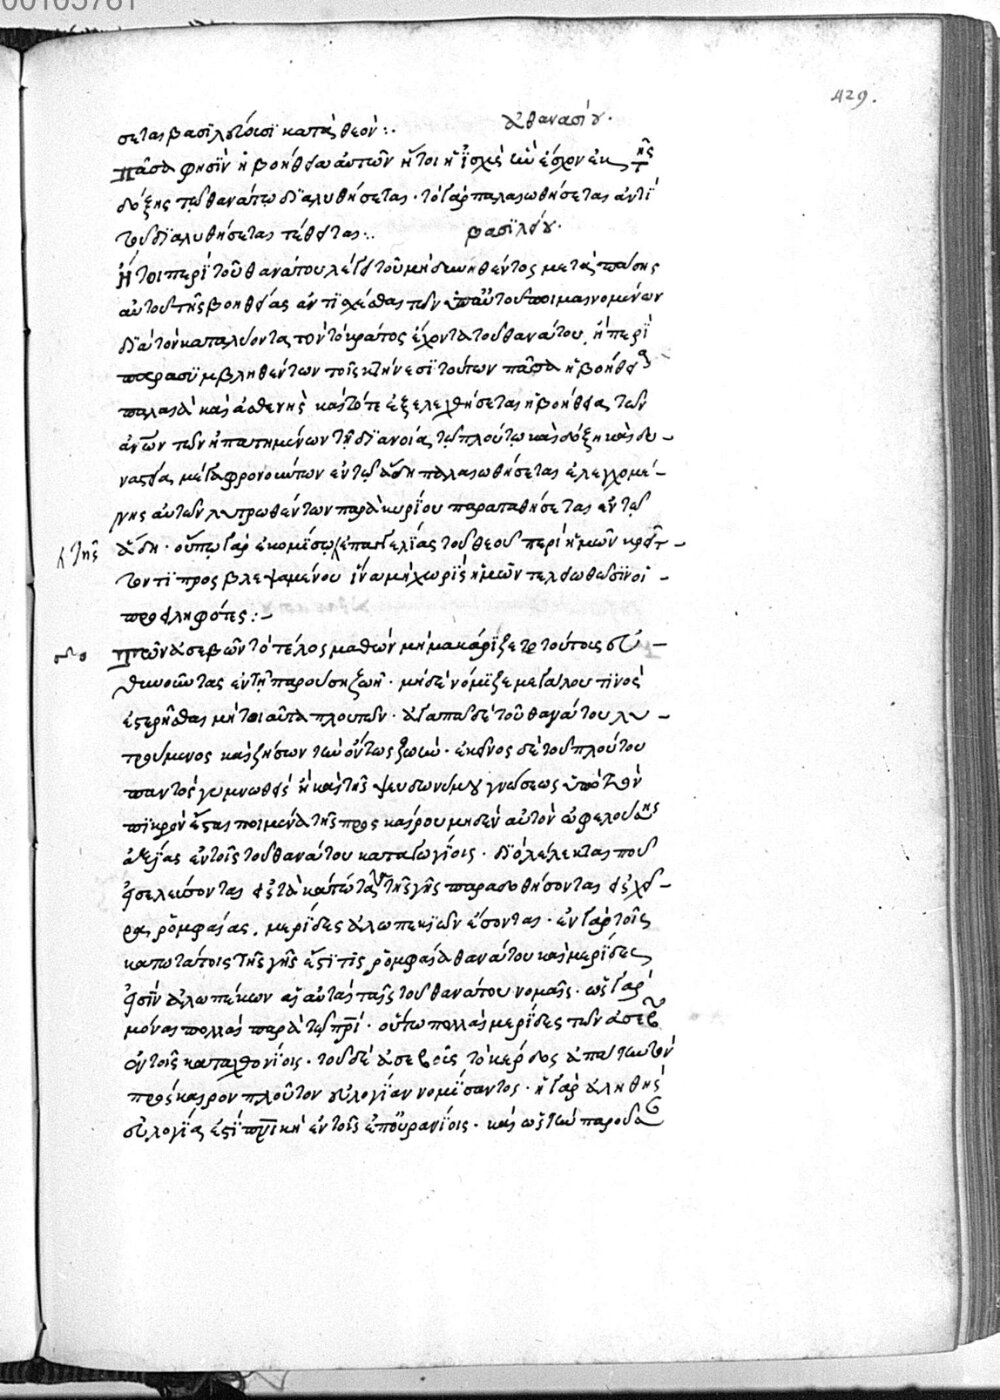 00105781
429.
σεται βασιλεύουσι κατὰ θεόν:. ἀθανασίου.
πᾶσα φησὶν ἡ βοήθεια αὐτῶν ἤτοι ἡ ἰσχὺς ἣν ἔσχον ἐκ τῆς
δόξης τῷ θανάτῳ διαλυθήσεται. τὸ γὰρ παλαιωθήσεται ἀντὶ
τοῦ διαλυθήσεται τέθειται:. βασιλείου.
ἤτοι περὶ τοῦ θανάτου λέγει τοῦ μὴ δεηθέντος μετὰ πάσης
αὐτοῦ τῆς βοηθείας ἀντισχέσθαι τῶν ὑπ' αὐτοῦ ποιμαινομένων
διὰ τὸν καταλύοντα τὸν τὸ κράτος ἔχοντα τοῦ θανάτου, ἢ περὶ
παρασυμβληθέντων τοῖς κτήνεσι τούτων πᾶσα ἡ βοήθεια
παλαιὰ καὶ ἀσθενὴς καὶ τότε ἐξελεγχθήσεται ἡ βοήθεια τῶν
ἀνων τῶν ἠπατημένων τῇ διανοίᾳ τῷ πλούτῳ καὶ δόξῃ καὶ δυ-
ναστείᾳ μεγαφρονούντων ἐν τῷ ᾅδῃ παλαιωθήσεται ἐλεγχομέ-
νης αὐτῶν λυτρωθέντων παρὰ κυρίου παραπαθήσεται ἐν τῷ
ᾅδῃ. οὔπω γὰρ ἐκομίσω ἐπαγγελίας τοῦ θεοῦ περὶ ἡμῶν κρεῖτ-
τῆς
τόν τι προσβλεψαμένου ἵνα μὴ χωρὶς ἡμῶν τελειωθῶσιν οἱ
προειληφότες:-
τῶν ἀσεβῶν τὸ τέλος μαθὼν μὴ μακάριζε τούτοις εὐ-
θηνοῦντας ἐν τῇ παρούσῃ ζωῇ. μηδὲ νόμιζε μεγάλου τινὸς
ἐστερῆσθαι μήτοι αὐτὰ πλουτῶν. ἀγαπᾶ δὲ τοῦ θανάτου λυ-
τρούμενος καὶ ζήσων τὴν ὄντως ζωήν. ἐκεῖνος δὲ τοῦ πλούτου
παντὸς γυμνωθεὶς ἢ καὶ τῆς ψευδωνύμου γνώσεως ὑπὸ τὸν
πικρὸν ἔσται ποιμένα τῆς πρὸς καιροῦ μηδὲν αὐτὸν ὠφελούσης
ἀξίας ἐν τοῖς τοῦ θανάτου καταγωγίοις. διὸ λέλεκται που
εἰσελεύσονται εἰς τὰ κατώτατα τῆς γῆς παραδοθήσονται εἰς χεῖ-
ρας ῥομφαίας, μερίδες ἀλωπεκίων ἔσονται. ἐν γὰρ τοῖς
κατωτάτοις τῆς γῆς ἐστί τις ῥομφαία θανάτου καὶ μερίδες
εἰσὶν ἀλωπέκων αἱ αὐταὶ ταῖς τοῦ θανάτου νομαῖς. ὡς γὰρ
μόναι πολλαὶ παρὰ τῷ πρί. οὕτω πολλαὶ μερίδες τῶν ἀσεβῶν
ἐν τοῖς καταχθονίοις. τοῦ δὲ ἀσεβοῦς τὸ κέρδος ἀπατων τὸν
πρόσκαιρον πλοῦτον εὐλογίαν νομίσαντος. ἡ γὰρ ἀληθὴς
εὐλογία ἐστὶ πνική ἐν τοῖς ἐπουρανίοις. καὶ ὡς τὴν παροῦσαν